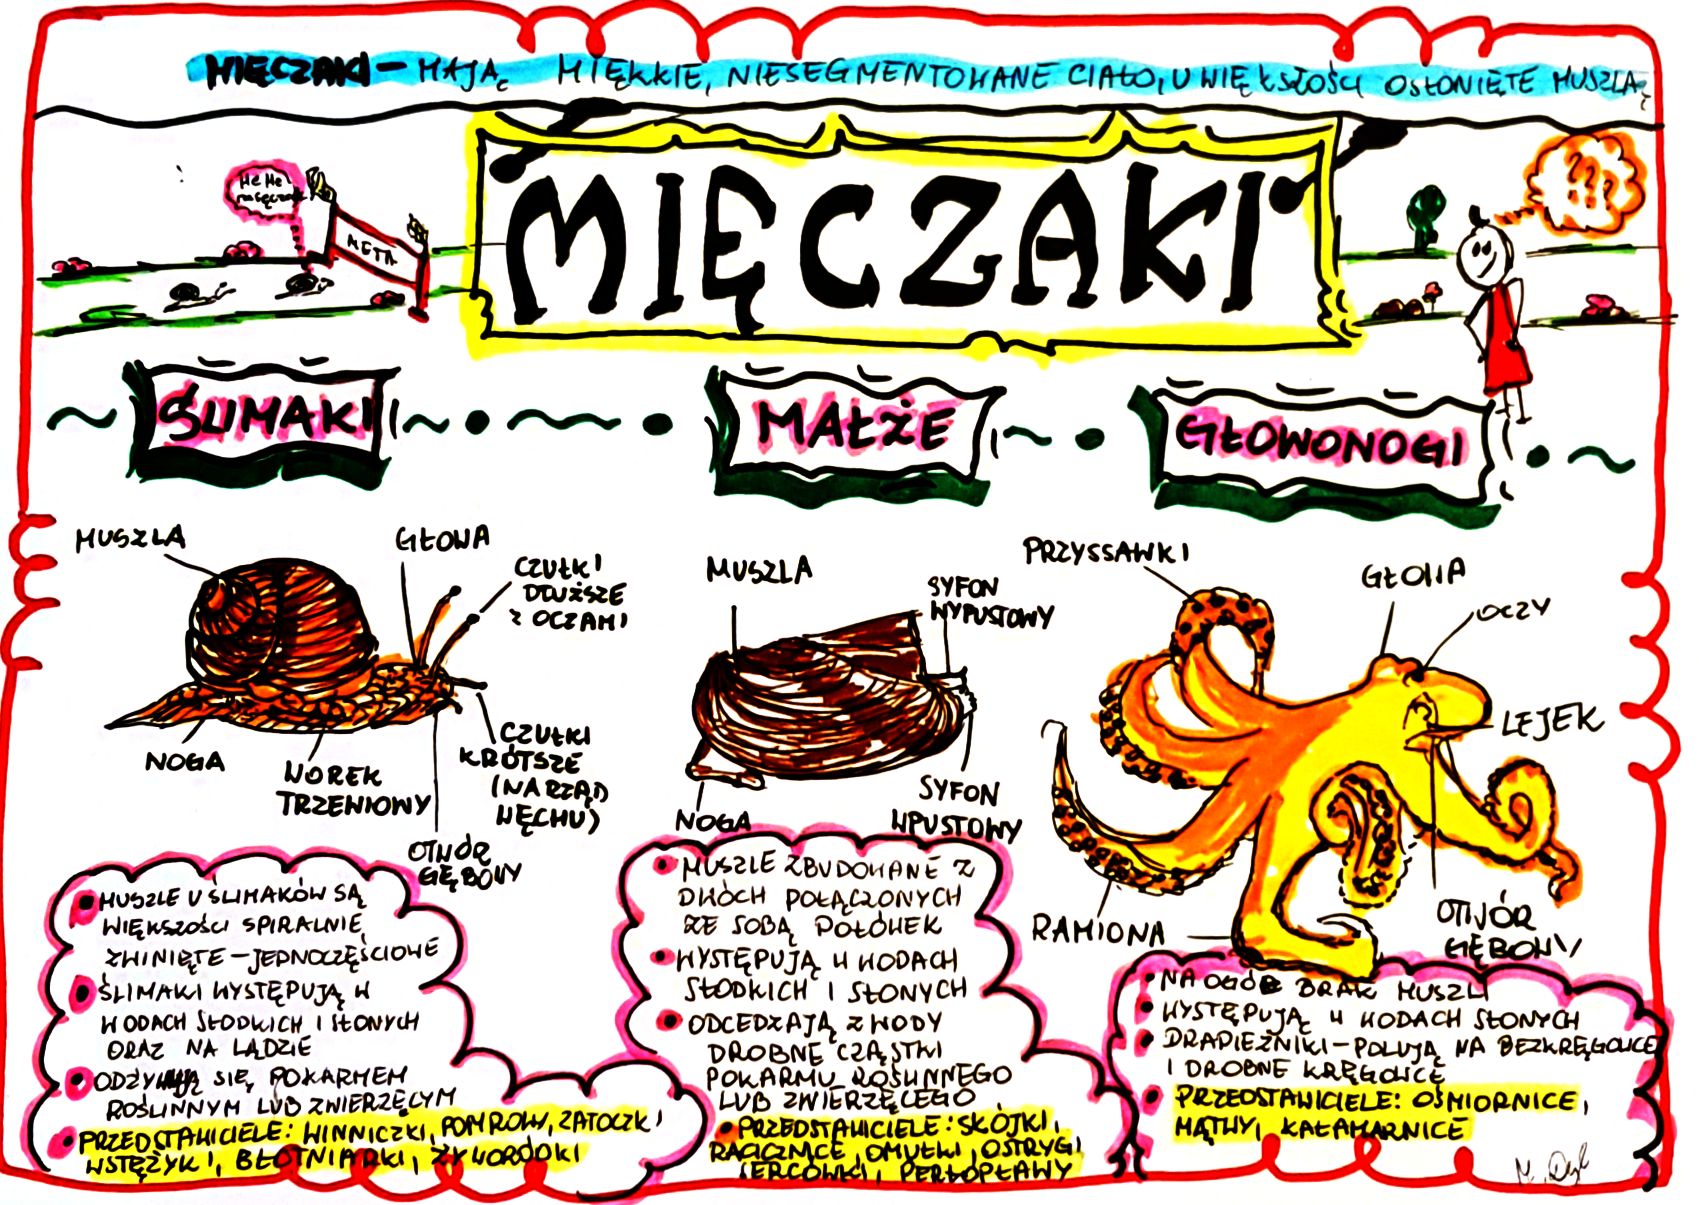 MIĘCZAKI – MAJĄ MIĘKKIE, NIESEGMENTOWANE CIAŁO, U WIĘKSZOŚCI OSŁONIĘTE MUSZLĄ
He He
META
MIĘCZAKI
???
ŚLIMAKI
MAŁŻE
GŁOWONOGI
MUSZLA
GŁOWA
CZUŁKI
DŁUŻSZE
Z OCZAMI
NOGA
WOREK
TRZENIOWY
CZUŁKI
KRÓTSZE
(NARZĄD
WĘCHU)
OTWÓR
GĘBOWY
MUSZLA
SYFON
WYPUSTOWY
NOGA
SYFON
WPUSTOWY
PRZYSSAWKI
GŁOWA
OCZY
LEJEK
RAMIONA
OTWÓR
GĘBOWY
• MUSZLE U ŚLIMAKÓW SĄ
WIĘKSZOŚCI SPIRALNIE
ZWINIĘTE – JEDNOCZĘŚCIOWE
• ŚLIMAKI WYSTĘPUJĄ W
WODACH SŁODKICH I SŁONYCH
ORAZ NA LĄDZIE
• ODŻYWIAJĄ SIĘ POKARMEM
ROŚLINNYM LUB ZWIERZĘCYM
• PRZEDSTAWICIELE: WINNICZKI, POMROWY, ZATOCZKI
WSTĘŻYKI, BŁOTNIARKI, ŻYWORÓDKI
• MUSZLE ZBUDOWANE Z
DWÓCH POŁĄCZONYCH
ZE SOBĄ POŁÓWEK
• WYSTĘPUJĄ W WODACH
SŁODKICH I SŁONYCH
• ODCEDZAJĄ Z WODY
DROBNE CZĄSTKI
POKARMU ROŚLINNEGO
LUB ZWIERZĘCEGO
• PRZEDSTAWICIELE: SKÓJKI,
RACICZNICE, OMUŁKI, OSTRYGI
SERCÓWKI, PERŁOPŁAWY
• NA OGÓŁ BRAK MUSZLI
• WYSTĘPUJĄ W WODACH SŁONYCH
• DRAPIEŻNIKI – POLUJĄ NA BEZKRĘGOWCE
I DROBNE KRĘGOWCE
• PRZEDSTAWICIELE: OŚMIORNICE,
MĄTWY, KAŁAMARNICE